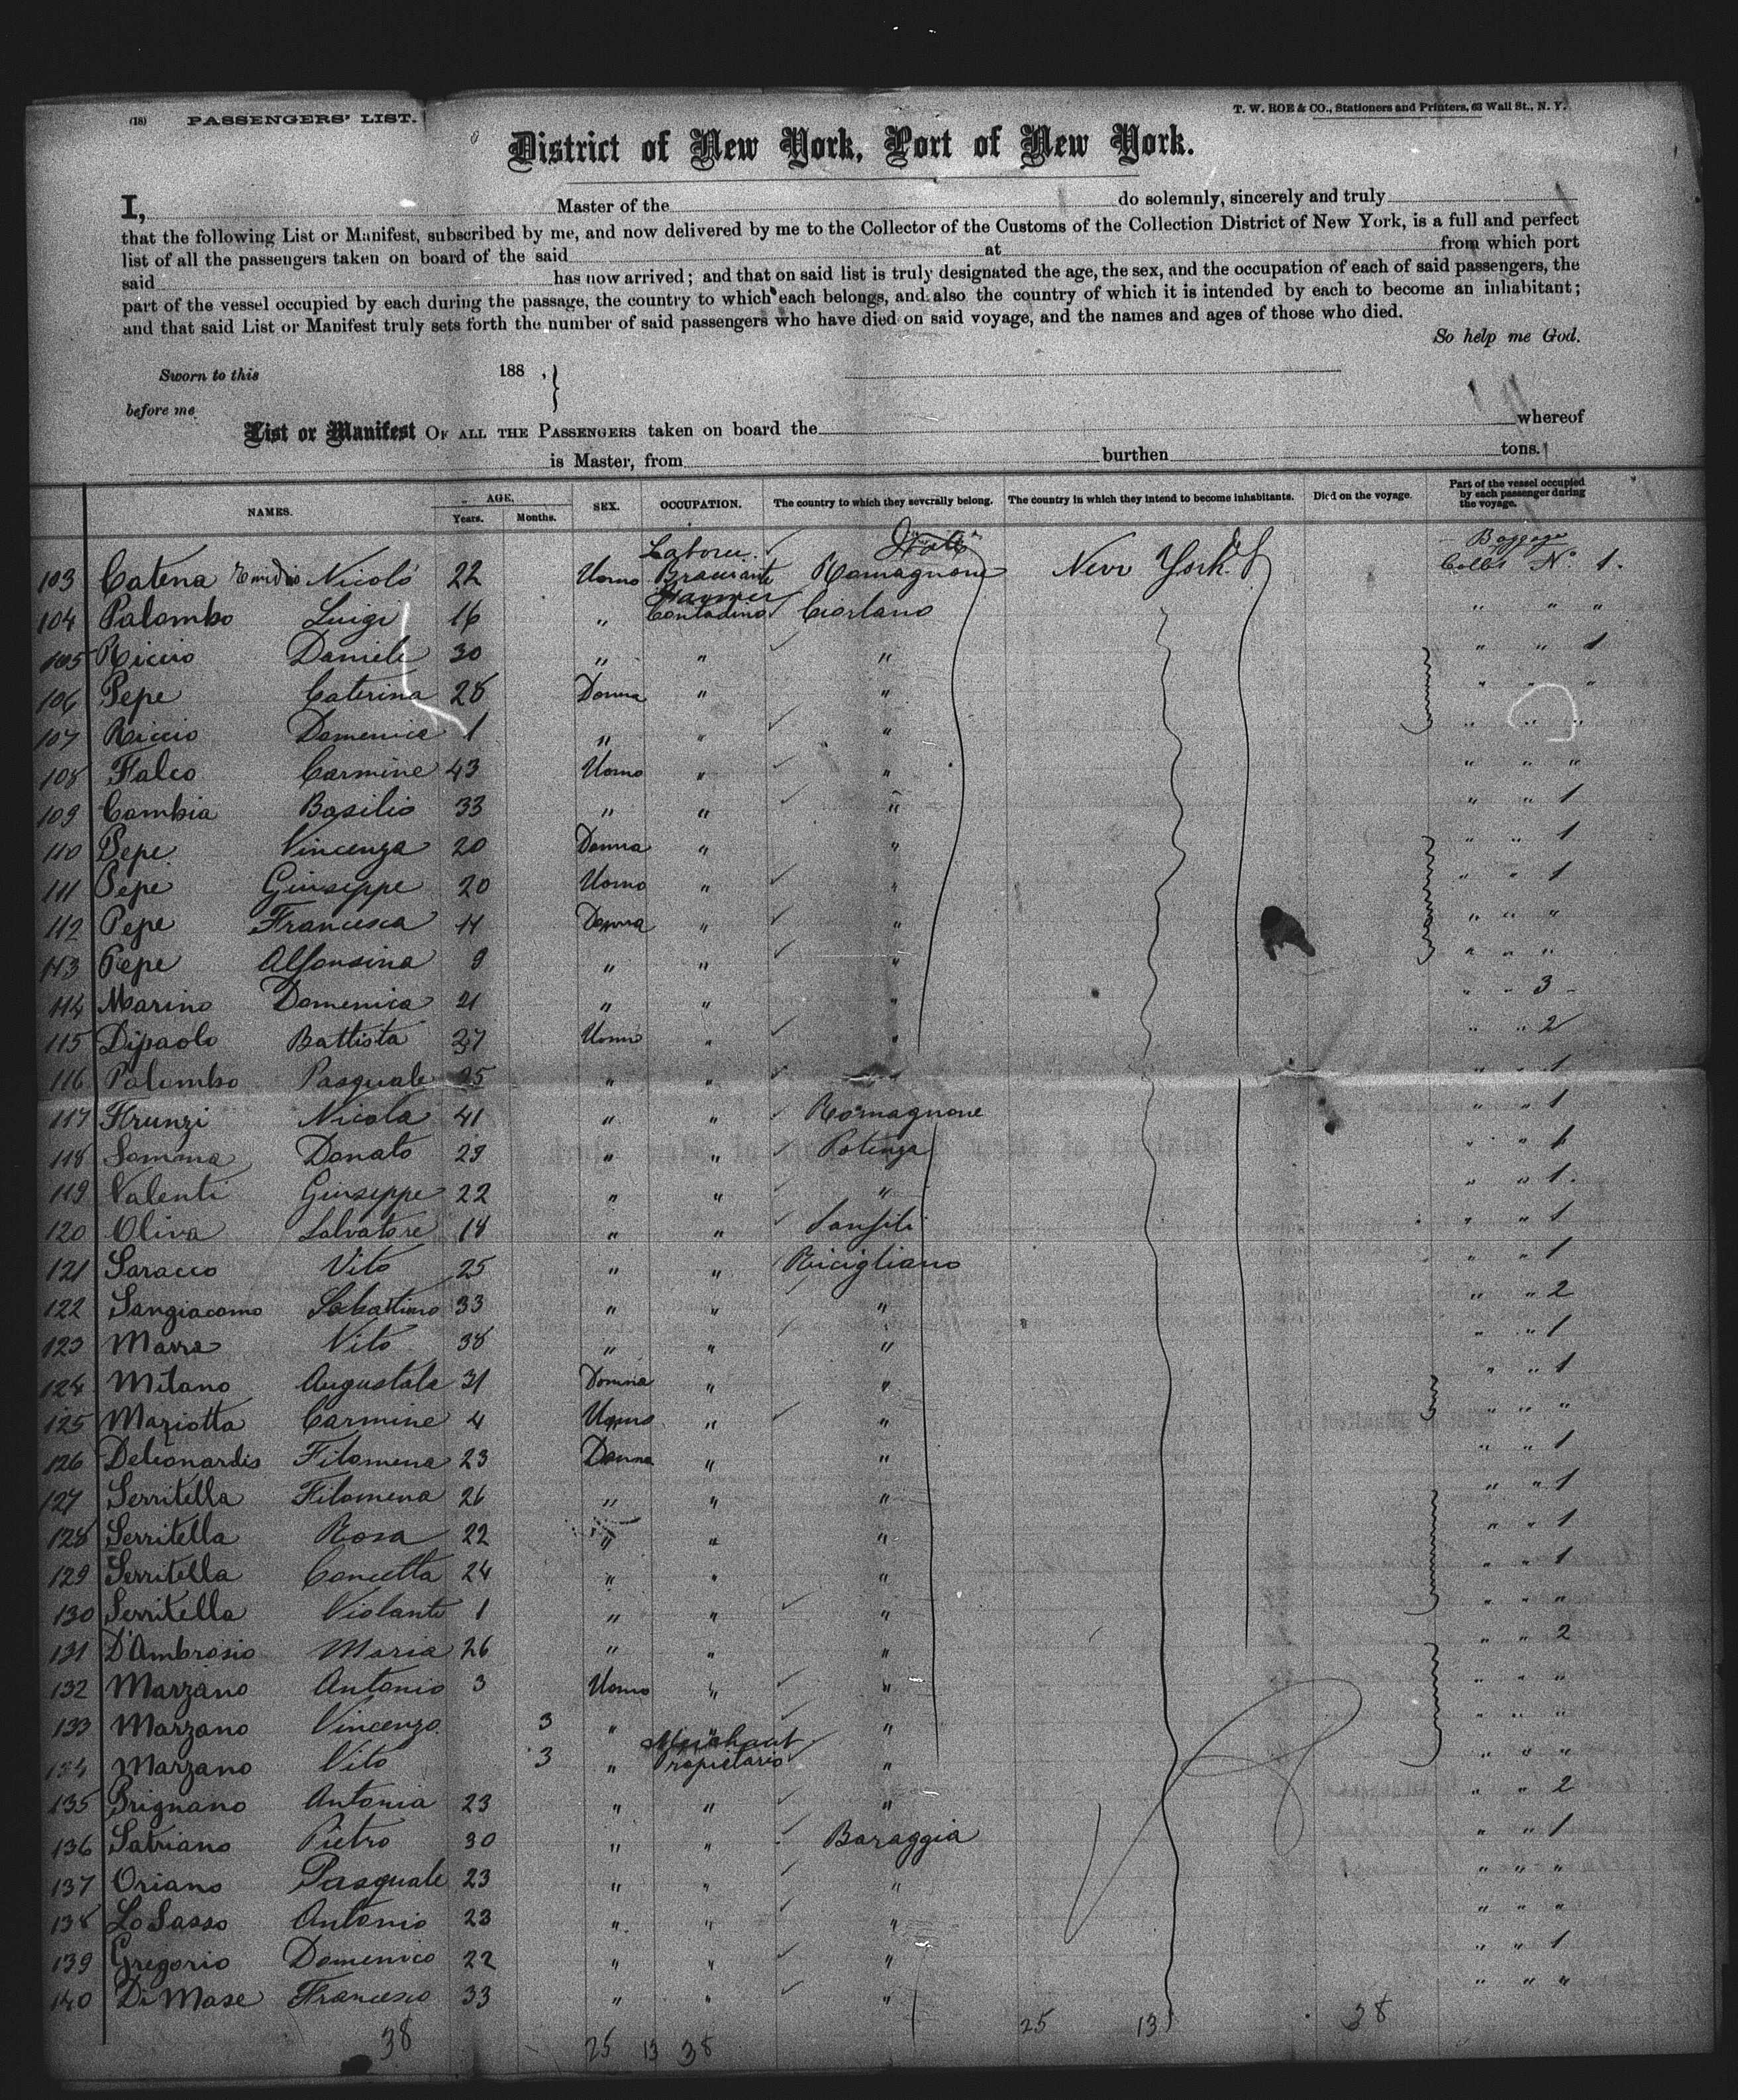 (18) PASSENGERS' LIST.
T. W. ROE & CO., Stationers and Printers, 63 Wall St., N. Y.
District of New York, Port of New York.
I, Master of the do solemnly, sincerely and truly
that the following List or Manifest, subscribed by me, and now delivered by me to the Collector of the Customs of the Collection District of New York, is a full and perfect
list of all the passengers taken on board of the said at from which port
said has now arrived; and that on said list is truly designated the age, the sex, and the occupation of each of said passengers, the
part of the vessel occupied by each during the passage, the country to which each belongs, and also the country of which it is intended by each to become an inhabitant;
and that said List or Manifest truly sets forth the number of said passengers who have died on said voyage, and the names and ages of those who died.
So help me God.
Sworn to this 188 ,
before me
List or Manifest OF ALL THE PASSENGERS taken on board the whereof
is Master, from burthen tons.
NAMES. AGE. Years. Months. SEX. OCCUPATION. The country to which they severally belong. The country in which they intend to become inhabitants. Died on the voyage. Part of the vessel occupied by each passenger during the voyage.
Baggage
103 Catena Emidio Nicoló 22 Uomo Bracciante Romagnone New York Colli N° 1.
Farmer
104 Palombo Luigi 16 " Contadino Ciorlano " " "
105 Riccio Daniele 30 " " " " " 1
106 Pepe Caterina 28 Donna " " " " "
107 Riccio Domenica 1 " " " " " "
108 Falco Carmine 43 Uomo " " " " "
109 Cambia Basilio 33 " " " " " 1
110 Pepe Vincenza 20 Donna " " " " 1
111 Pepe Giuseppe 20 Uomo " " " " 1
112 Pepe Francesca 14 Donna " " " " "
113 Pepe Alfonsina 9 " " " " " "
114 Marino Domenica 21 " " " " " 3
115 Dipaolo Battista 37 Uomo " " " " 2
116 Palombo Pasquale 25 " " " " " 1
117 Frunzi Nicola 41 " " Romagnone " " 1
118 Somma Donato 29 " " Potenza " " 1
119 Valenti Giuseppe 22 " " " " " 1.
120 Oliva Salvatore 18 " " " " 1
121 Saracco Vito 25 " " Ricigliano " " 1
122 Sangiacomo Sabatino 33 " " " " " 2
123 Marra Vito 38 " " " " " 1
124 Milano Augustala 31 Donna " " " " 1
125 Maziotta Carmine 4 Uomo " " " " "
126 Deleonardis Filomena 23 Donna " " " " 1
127 Serritella Filomena 26 " " " " " 1
128 Serritella Rosa 22 " " " " " 1
129 Serritella Concetta 24 " " " " " 1
130 Serritella Violante 1 " " " " " "
131 D'Ambrosio Maria 26 " " " " " 2
132 Marzano Antonio 3 Uomo " " " " "
133 Marzano Vincenzo 3 " " " " " "
Merchant
134 Marzano Vito 3 " Propietario " " " "
135 Prignano Antonia 23 " " " " " 2
136 Satriano Pietro 30 " " Baraggia " " 1
137 Oriano Pasquale 23 " " " " " "
138 LoSasso Antonio 23 " " " " " "
139 Gregorio Domenico 22 " " " " " 1
140 DiMase Francesco 33 " " " " " "
38 25 13 38 25 13 38